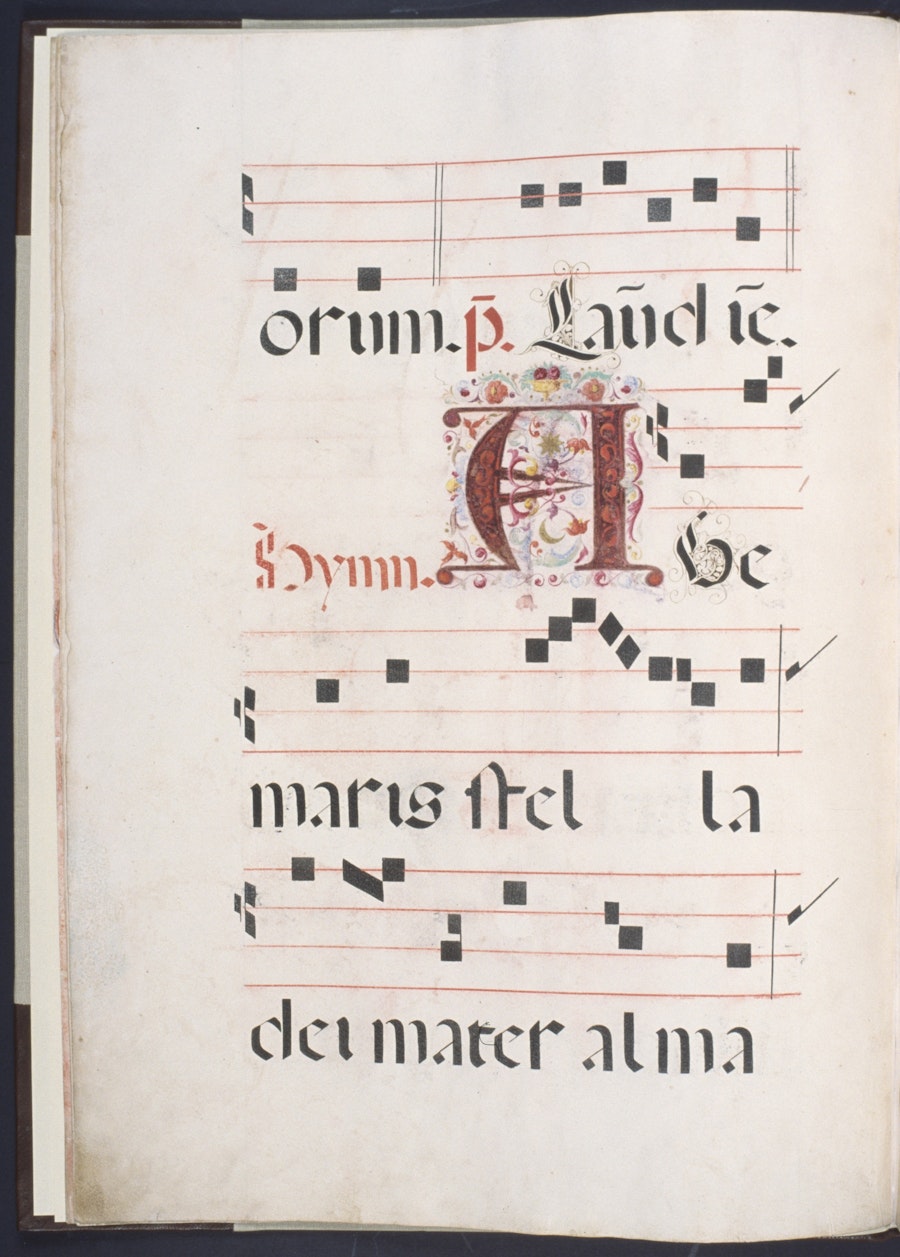 orum. p̄. Laūd īē.
Hymn. A Ve
maris ſtel la
dei mater alma